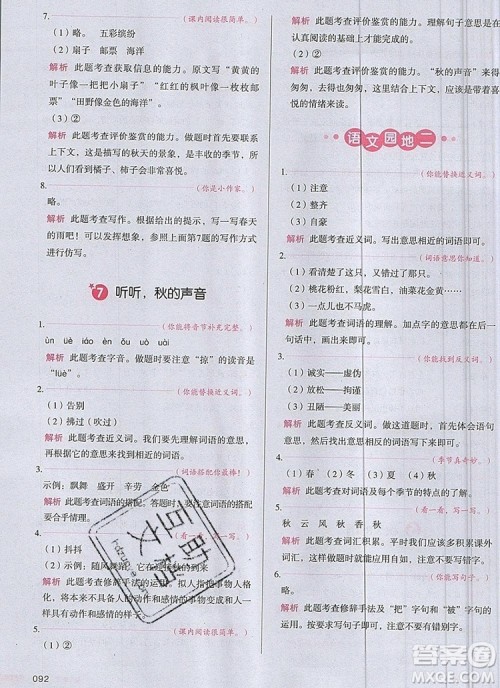 7.
(课内阅读很简单。)
(1)略。 五彩缤纷
(2)扇子 邮票 海洋
(3)②
解析 此题考查获取信息的能力。原文写“黄黄的
叶子像一把把小扇子”“红红的枫叶像一枚枚邮
票”“田野像金色的海洋”。
(3)②
解析 此题考查评价鉴赏的能力。做题时要联系
上下文,描写的秋天的景象,是丰收的季节,所以
人们看到橘子、柿子会非常喜悦。
8.
(你是小作家。)
略。
解析 此题考查写作。可以写写春天或
雨吧!也可以按照上面第7题的写作方式
进行仿写。
7 听听,秋的声音
1.
(你能将音节补充完整。)
ùn üè iáo èn òu uó
解析 此题考查字音。做题时要注意“掠”的读音是
“lüè”。
2.
(你能替换近义词。)
(1)告别
(2)拂过(吹过)
解析 此题考查近义词。我们要先理解词语的意思,
然后再写出与它们意思相近的词。
3.
(词语搭配你最棒!)
示例:飘舞 盛开 辛劳 金色
解析 此题考查词语的搭配。答题时,要注词语的搭配
要合乎情理。
4.
(看一看,写一写。)
(1)抖抖
(2)示例:随风飘动
解析 此题考查修辞手法的运用。拟人指把事物人格
化,将本来不具备人的动作和感情的事物变成和人
一样具有动作和感情的样子。
5.
(课内阅读很简单。)
092
(1)②
解析 此题考查评价鉴赏的能力。理解句子意思是在
认真阅读的基础上才能做出的。
(2)②
解析 此题考查评价鉴赏的能力。“秋的声音”来得
匆匆,去得匆匆,好像在和我们做游戏,要带着喜
悦的情绪来读。
语文园地二
1.
(你能替换近义词。)
(1)注意
(2)整齐
(3)自豪
解析 此题考查近义词。写出意思相近的词语即可。
2.
(词语意思你知道。)
(1)看清楚了,这一切
(2)桃花粉红,梨花雪白,油菜花金黄
(3)一点儿也不马虎
解析 此题考查词语的理解。加点字的意思出来
即可。
3.
(你能找到反义词。)
(1)诚实——虚伪
(2)放松——拘谨
(3)丑陋——美丽
解析 此题考查反义词。做这道题时,要先理解
词语的意思,然后再写出与它们意思相反的词语
即可。
4.
(季节真奇妙。)
(1)春 (2)冬 (3)夏 (4)秋
解析 此题考查对词语及每个季节的特点的理解。
5.
(看一看,写一写。)
秋 云 风 秋 香 秋
解析 此题考查词汇积累。学习中要多积累课外
词汇。
6.
(你能写句子。)
解析 此题考查修辞手法及“把”字句和“被”字句的
运用。